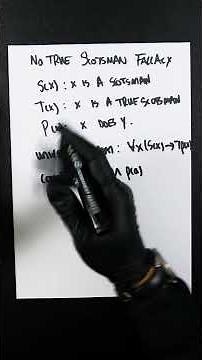 NO TRUE SCOTSMAN FALLACY
S(x) : x IS A SCOTSMAN
T(x) : x IS A TRUE SCOTSMAN
x DOES Y.
: ∀x(S(x)→¬P(x)
P(a)